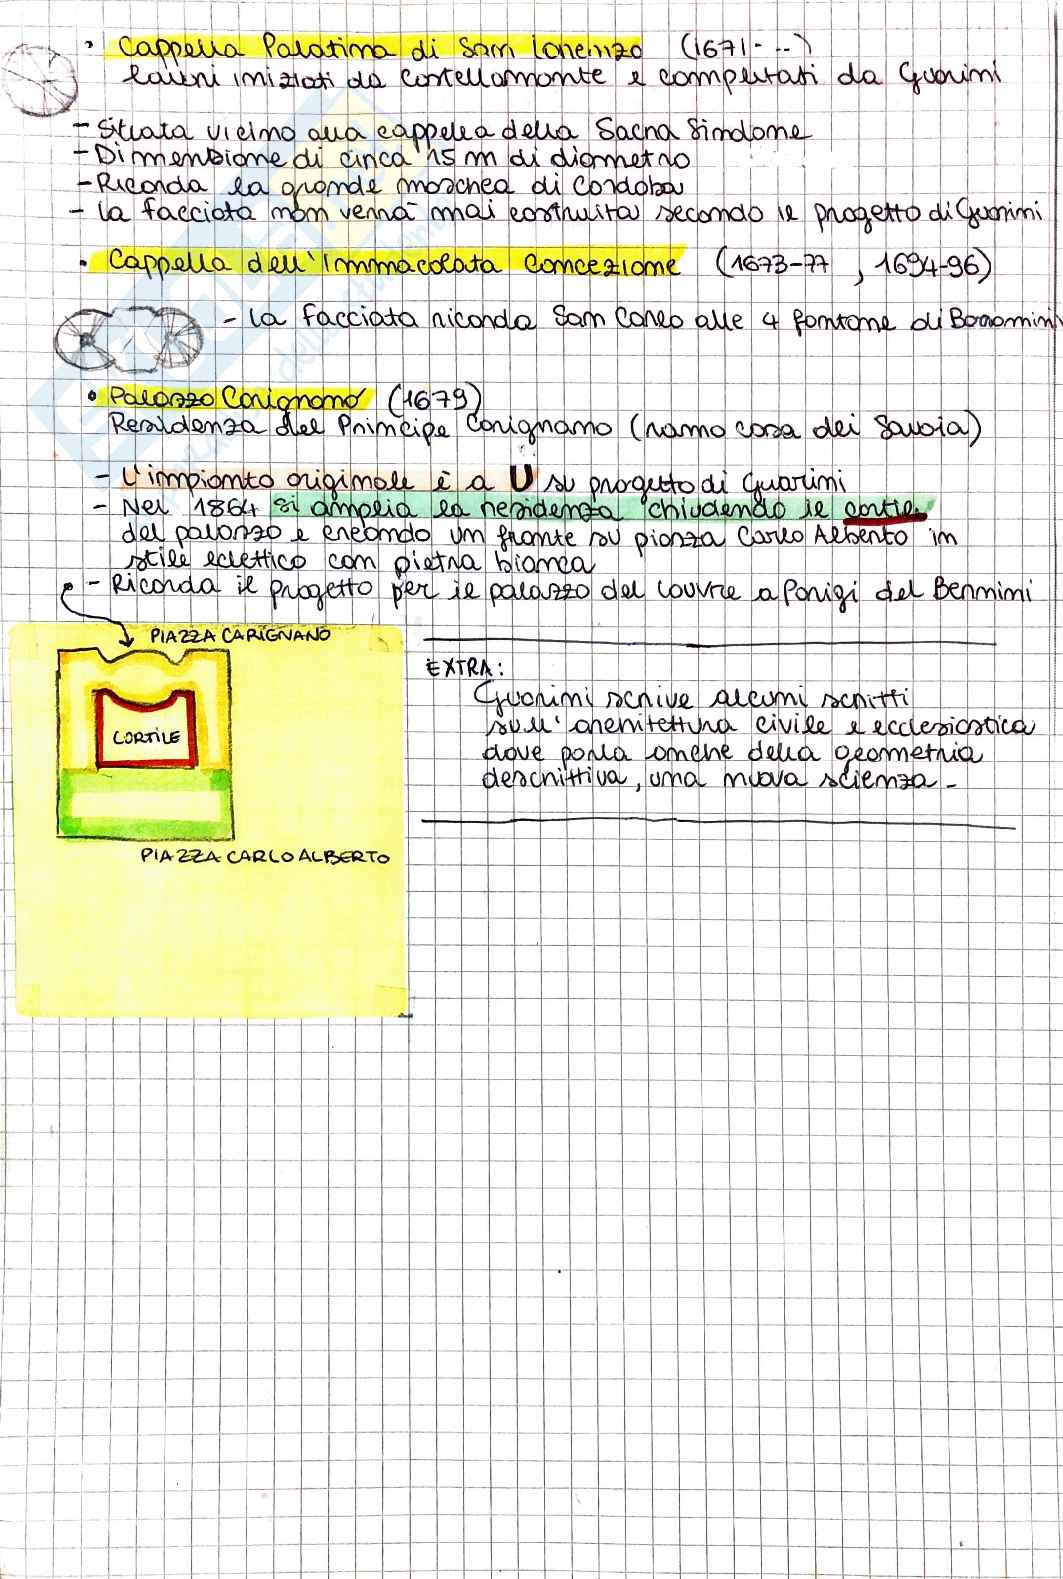 • Cappella Palatina di San Lorenzo (1671-...)
Lavori iniziati da Castellamonte e completati da Guarini
- Situata vicino alla cappella della Sacra Sindone
- Dimensione di circa 15 m di diametro
- Ricorda la grande moschea di Cordoba
- La facciata non verrà mai costruita secondo il progetto di Guarini
• Cappella dell'Immacolata Concezione (1673-77, 1694-96)
- La facciata ricorda San Carlo alle 4 fontane di Borromini
• Palazzo Carignano (1679)
Residenza del Principe Carignano (ramo casa dei Savoia)
- L'impianto originale è a U su progetto di Guarini
- Nel 1864 si amplia la residenza chiudendo il cortile
del palazzo e creando un fronte su piazza Carlo Alberto in
stile eclettico con pietra bianca
- Ricorda il progetto per il palazzo del Louvre a Parigi del Bernini
PIAZZA CARIGNANO
CORTILE
PIAZZA CARLO ALBERTO
EXTRA:
Guarini scrive alcuni scritti
sull'architettura civile e ecclesiastica
dove parla anche della geometria
descrittiva, una nuova scienza -